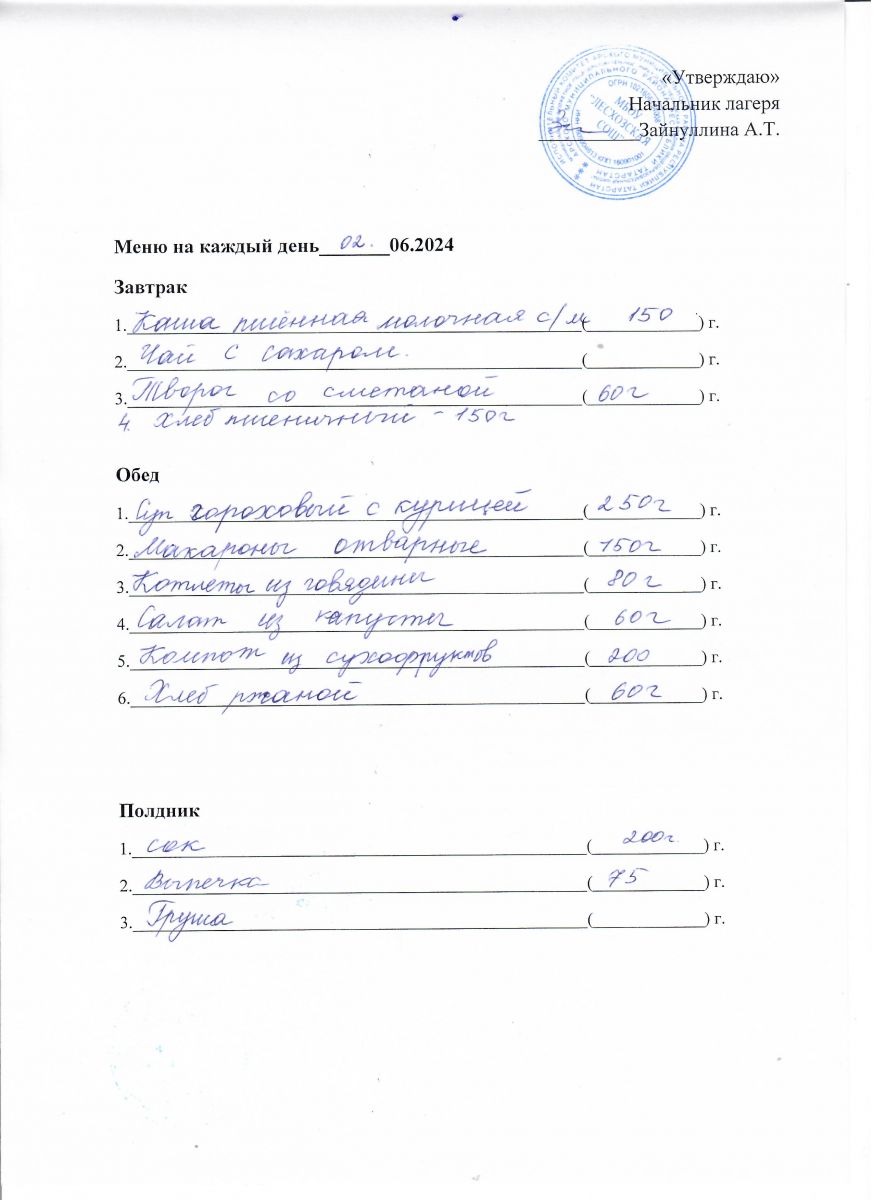 «Утверждаю»
Начальник лагеря
Зайнуллина А.Т.
МБОУ
"ЛЕСХОЗСКАЯ
СОШ"
Меню на каждый день 02. 06.2024
Завтрак
1. Каша пшённая молочная с/м ( 150 ) г.
2. Чай с сахаром. ( ) г.
3. Творог со сметаной ( 60г ) г.
4. Хлеб пшеничный - 150г
Обед
1. Суп гороховый с курицей ( 250г ) г.
2. Макароны отварные ( 150г ) г.
3. Котлеты из говядины ( 80г ) г.
4. Салат из капусты ( 60г ) г.
5. Компот из сухофруктов ( 200 ) г.
6. Хлеб ржаной ( 60г ) г.
Полдник
1. сок ( 200г. ) г.
2. Выпечка ( 75 ) г.
3. Груша ( ) г.